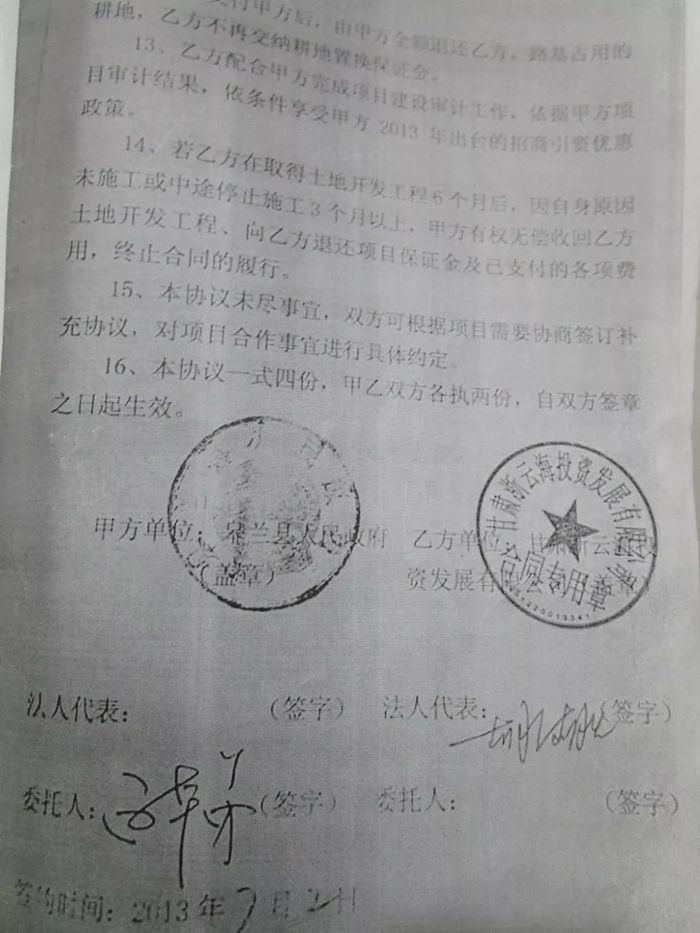 交付甲方后，由甲方全额退还乙方。路基占用的
耕地，乙方不再交纳耕地置换保证金。
13、乙方配合甲方完成项目建设审计工作，依据甲方项
目审计结果，依条件享受甲方 2013 年出台的招商引资优惠
政策。
14、若乙方在取得土地开发工程6个月后，因自身原因
未施工或中途停止施工3个月以上，甲方有权无偿收回乙方
土地开发工程、向乙方退还项目保证金及已支付的各项费
用，终止合同的履行。
15、本协议未尽事宜，双方可根据项目需要协商签订补
充协议，对项目合作事宜进行具体约定。
16、本协议一式四份，甲乙双方各执两份，自双方签章
之日起生效。
甘肃浙云海投资发展有限公司
合同专用章
甲方单位：皋兰县人民政府 乙方单位：甘肃浙云海投
（盖章） 资发展有限公司（盖章）
法人代表： （签字） 法人代表： （签字）
委托人： （签字） 委托人： （签字）
签约时间：2013 年 7 月 2 日